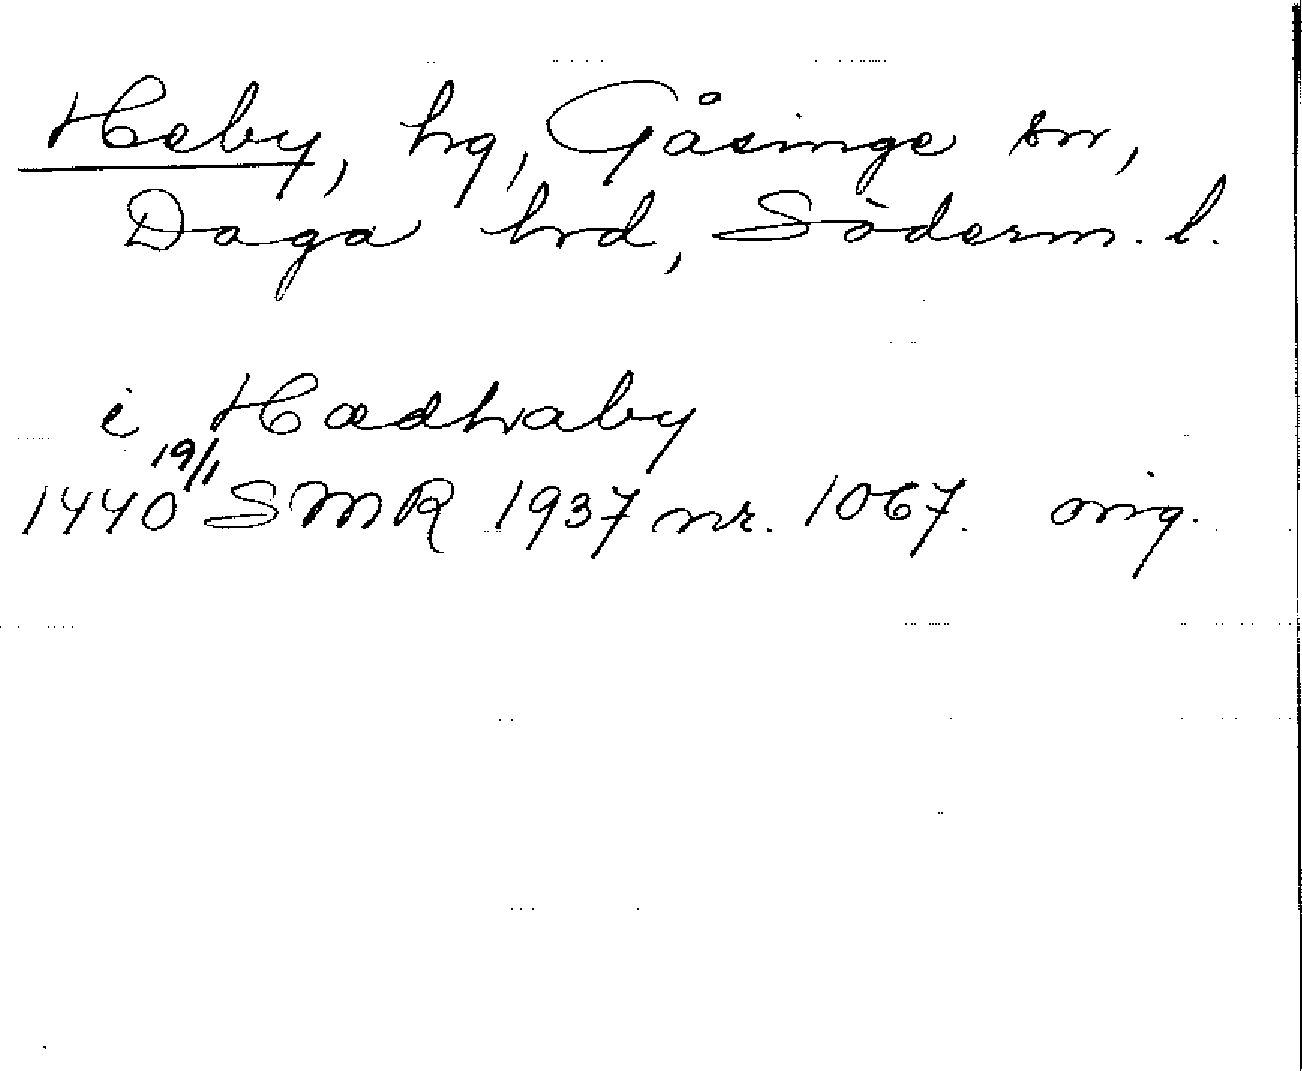 Heby, hg, Gåsinge sn,
Daga hrd, Söderm. l.
i Hædhaby
1440 19/1 SMR 1937 nr. 1067. orig.